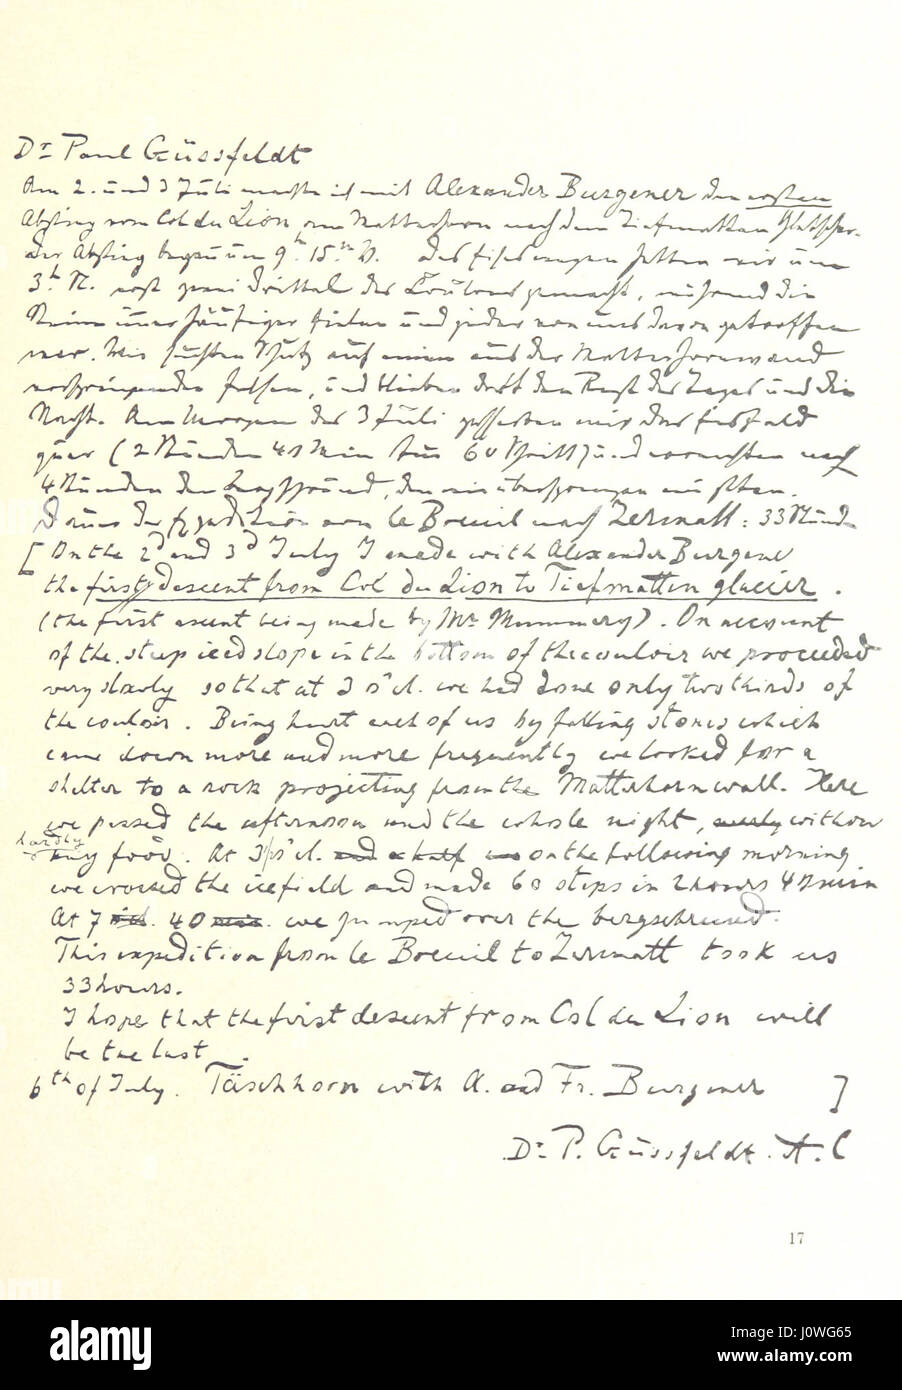 Dr Paul Güssfeldt
Am 2. und 3 Juli machte ich mit Alexander Burgener den ersten
Abstieg vom Col du Lion am Matterhorn nach dem Tiefmatten Gletscher.
der Abstieg begann um 9h 15m V. Des Eises wegen hatten wir um
3h N. erst zwei Drittel des Couloirs gemacht, während die
Steine immer häufiger fielen und jeder von uns davon getroffen
war. Wir suchten Schutz auf einem aus der Matterhornwand
vorspringenden Felsen, und blieben dort den Rest des Tages und die
Nacht. Am Morgen des 3 Juli
quer (2 Stunden 40 Min für 60 Schritt) und erreichten nach
4 Stunden den Bergschrund, den wir überspringen mußten.
Dauer der Expedition von le Breuil nach Zermatt: 33 Stunden
[On the 2d and 3d July I made with Alexander Burgener
the first descent from Col du Lion to Tiefmatten glacier.
(the first ascent being made by Mr Mummery). On account
of the steep iced slope in the bottom of the couloir we proceeded
very slowly so that at 3 o'cl. we had done only two thirds of
the couloir. Being hurt each of us by falling stones which
came down more and more frequently we looked for a
shelter to a rock projecting from the Matterhorn wall. Here
we passed the afternoon and the whole night, nearly without
hardly
any food. At 3 o'cl. and a half on the following morning
we crossed the icefield and made 60 steps in 2 hours 40 min
At 7 40 we jumped over the bergschrund.
This expedition from le Breuil to Zermatt took us
33 hours.
I hope that the first descent from Col du Lion will
be the last.
6th of July. Täschhorn with A. and Fr. Burgener ]
Dr P. Güssfeldt. A. C
17
alamy
alamy
Image ID: J0WG65
www.alamy.com